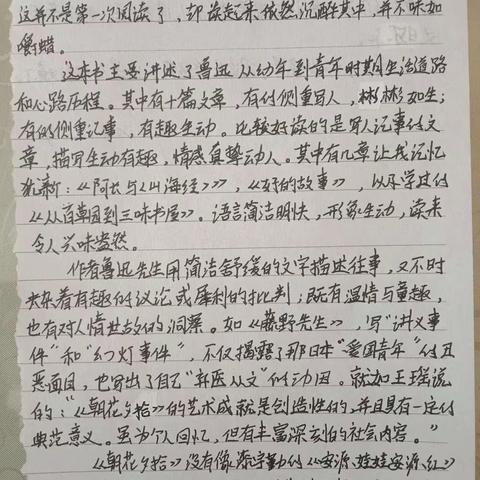 这并不是第一次阅读了，却读起来依然沉醉其中，并不味如
嚼蜡。
这本书主要讲述了鲁迅从幼年到青年时期生活道路
和心路历程。其中有十篇文章，有的侧重写人，彬彬如生；
有的侧重记事，有趣生动。比较好读的是写人记事的文
章，描写生动有趣，情感真挚动人。其中有几章让我记忆
犹新：《阿长与《山海经》》，《好的故事》，以及学过的
《从百草园到三味书屋》。语言简洁明快，形象生动，读来
令人兴味盎然。
作者鲁迅先生用简洁舒缓的文字描述往事，又不时
夹杂着有趣的议论或犀利的批判；既有温情与童趣，
也有对人情世故的洞察。如《藤野先生》，写"讲义事
件"和"幻灯事件"，不仅揭露了那日本"爱国青年"的丑
恶面目，也写出了自己"弃医从文"的动因。就如王瑶说
的："《朝花夕拾》的艺术成就是创造性的，并且具有一定的
典范意义。虽为个人回忆，但有丰富深刻的社会内容。"
《朝花夕拾》没有像 的《安源娃娃安源红》